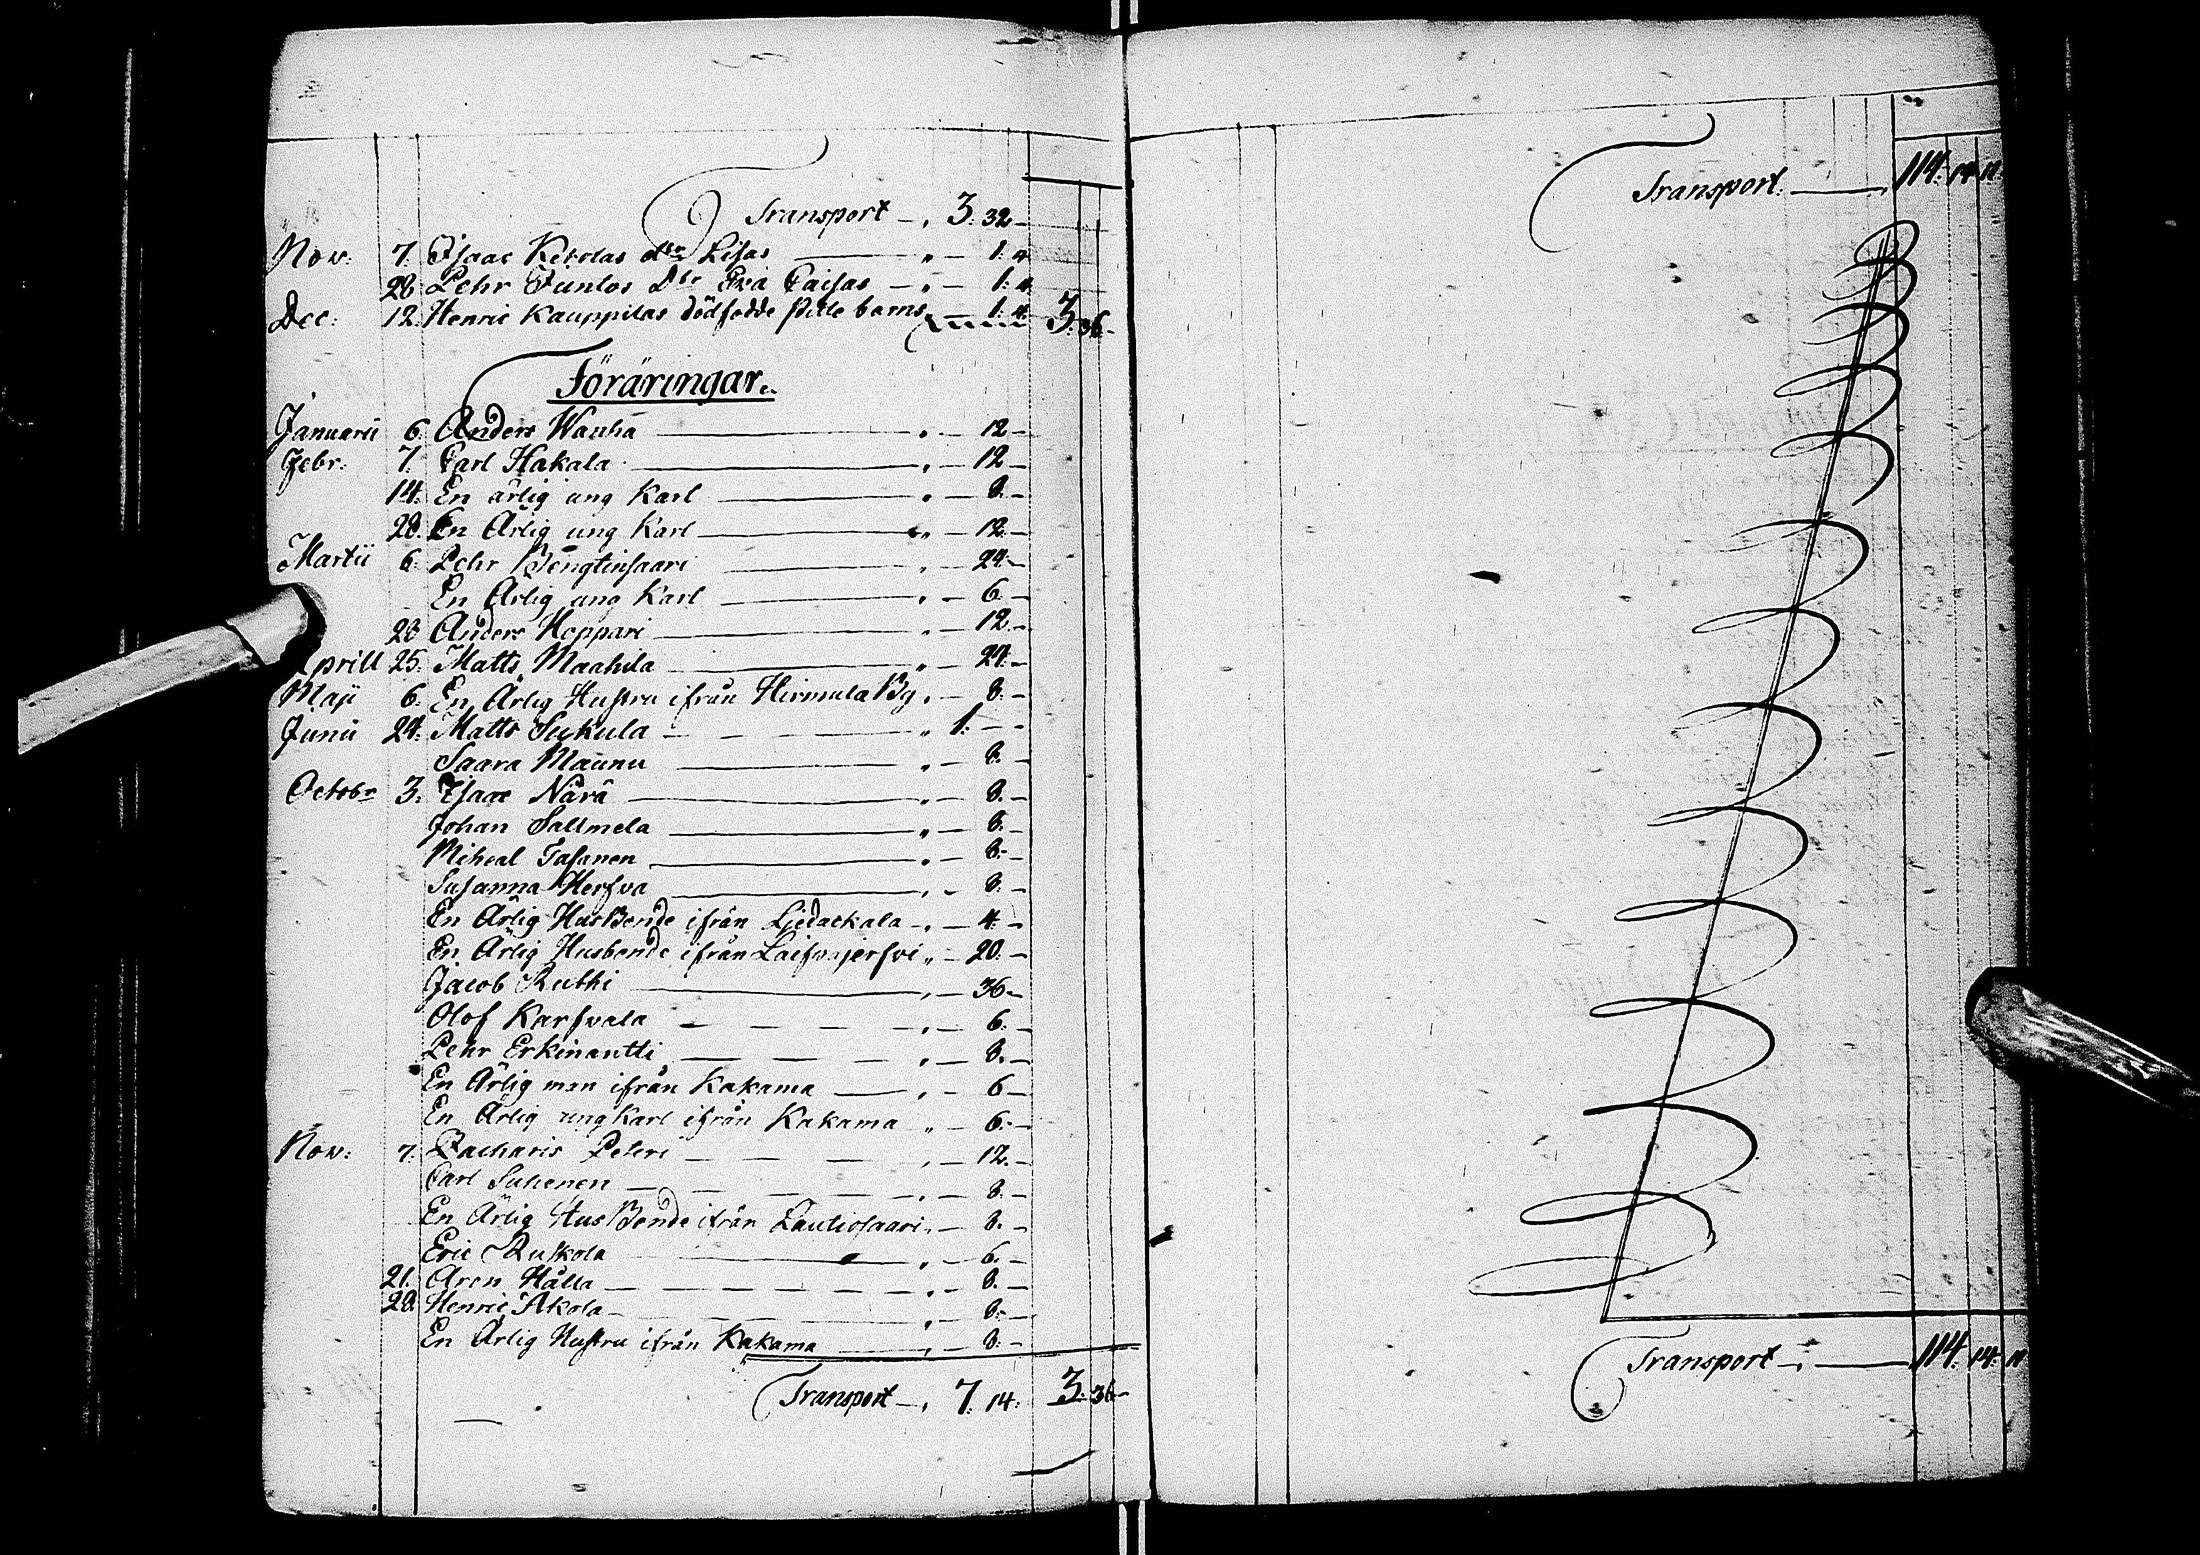 Transport —. 3. 32 —
Nov: 7. Isaac Ketolas dtr Lisas — " — 1. 4
28 Pehr Funtos Dtr Eva Caisas — " — 1: 4
Dec: 12. Henric Kauppilas dödfödde Pille barns — 1: 4. 3. 36 —
Föräringar.
Januarii 6. Anders Wanha — 12 —
Febr: 7. Carl Hakala — 12 —
14. En ärlig ung Karl — 8. —
28. En Ärlig ung Karl — 12. —
Martii 6. Pehr Bengtinsaari — 24. —
En Ärlig ung Karl — 6. —
28 Anders Hoppari — 12. —
Aprill 25. Matts Maahila — 24. —
Maji 6. En Ärlig Hustru ifrån Hirmula By. — 8. —
Junii 24. Matts Sukula — " 1. — —
Saara Maunu — 8. —
Octobr 3. Isaac Närä — 8. —
Johan Sallmela — " — 8. —
Miheal Tasanen — 8. —
Susanna Herfva — 8. —
En Ärlig HusBonde ifrån Liedackala —. — 4. —
En Ärlig Husbonde ifrån Laifvajerfvi " — 20. —
Jacob Ruthi — 36 —
Olof Karfvala — 6. —
Pehr Erkinantti — 8. —
En Ärlig man ifrån Kakama — 6 —
En Ärlig ung Karl ifrån Kakama " — 6. —
Nov: 7. Zacharis Peteri — 12. —
Carl Suhonen — 8. —
En Ärlig HusBonde ifrån Lautiosaari. — 8. —
Eric Ruskola — 6. —
21. Aron Hälla — 8. —
28. Henric Akola — 8. —
En Ärlig Hustru ifrån Kakama — 8. —
Transport —. 7. 14. 3. 36 —
Transport. — 114. 14. 11.
Transport —. — 114. 14. 11